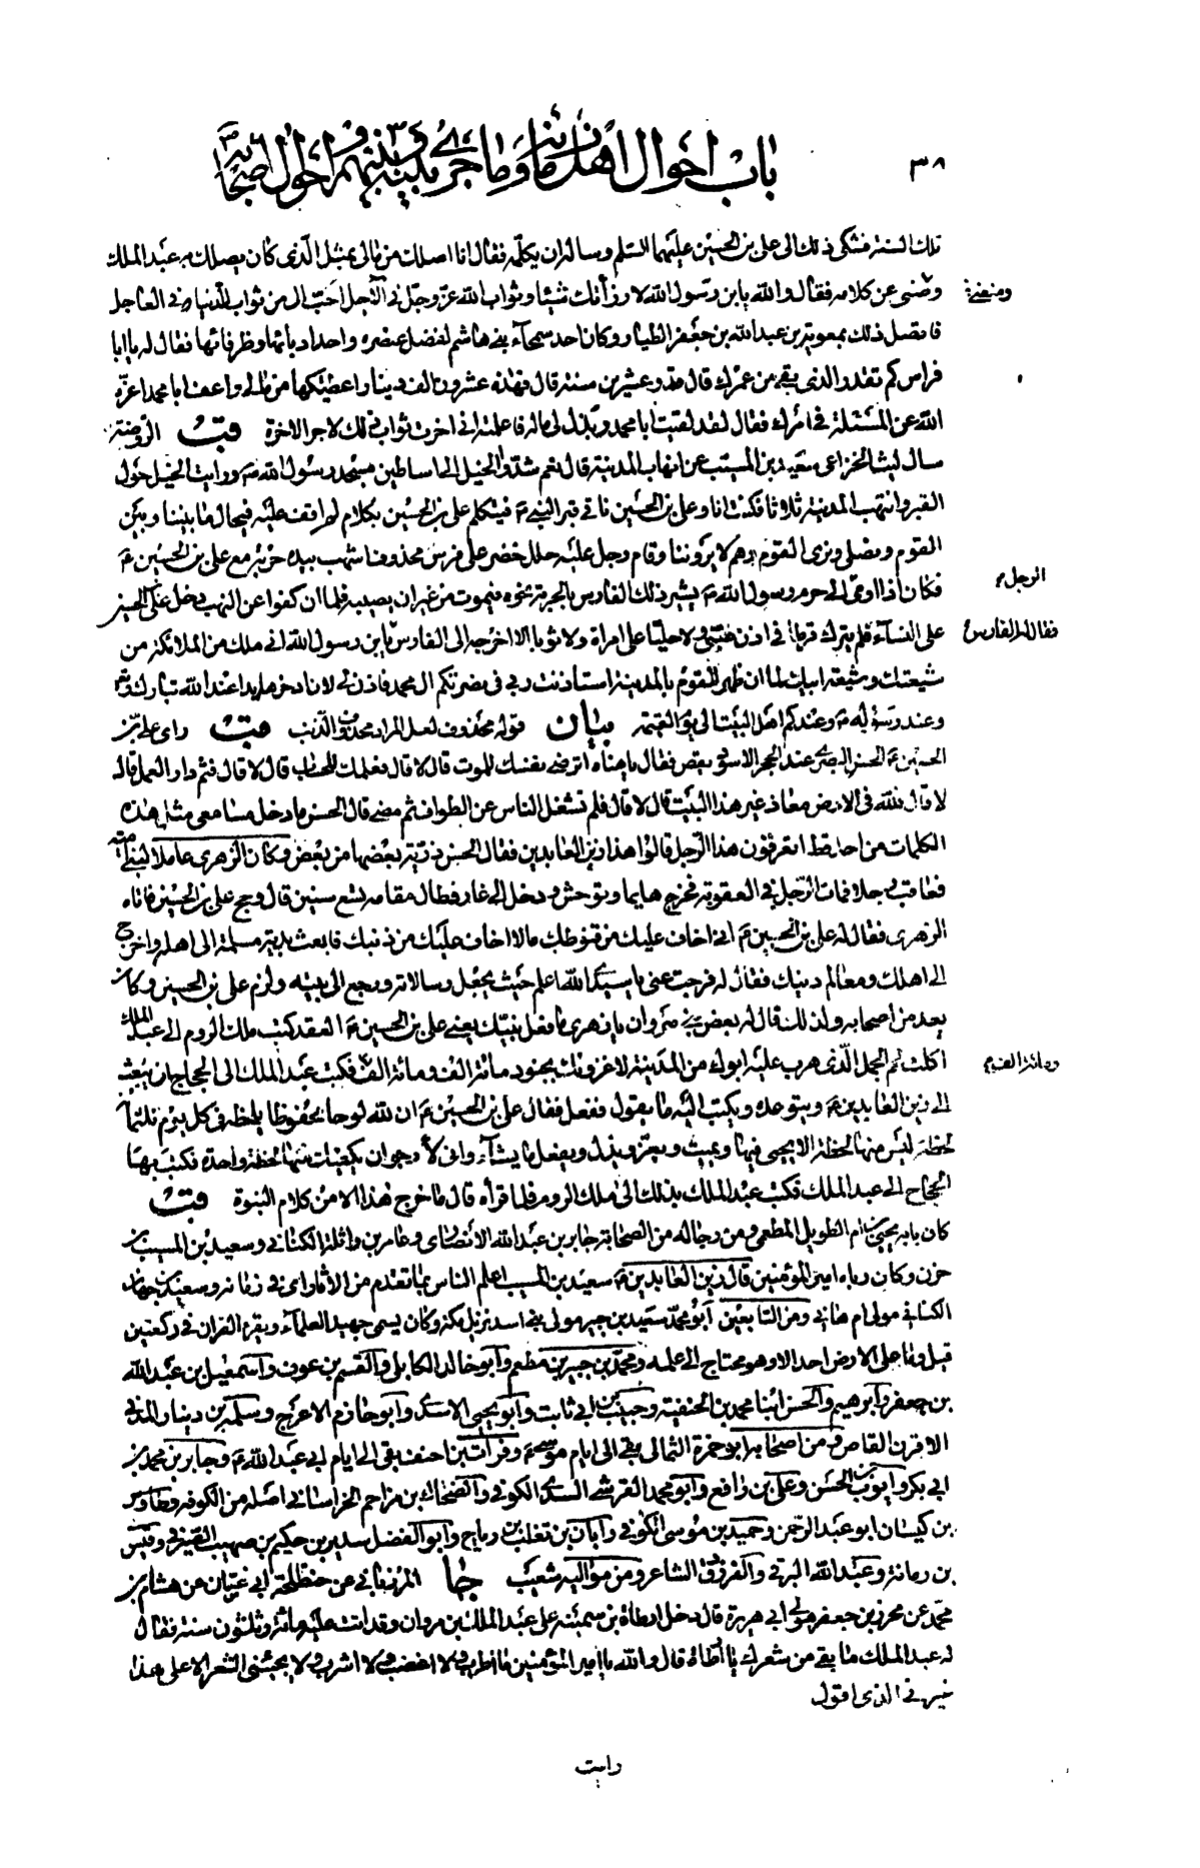 ٣٨
باب احوال اهل زمانه وما جرى بينه وبينهم واحوال اصحابه
تلك السنة فشكى ذلك الى على بن الحسين عليهما السلم وساله ان يكلمه فقال انا اصلك من مالى بمثل الذى كان يصلك به عبد الملك
وصنى عن كلامه فقال والله يابن رسول الله لا رزأتك شيئا وثواب الله عز وجل فى الآجل احب الى من ثواب الدنيا فى العاجل
ومنعة
فاتصل ذلك بمعوية بن عبد الله بن جعفر الطيار وكان احد سمحآء بنى هاشم لفضل عنصره واحد ادبائها وظرفائها فقال له يا ابا
فراس كم تقدر الذى بقى من عمرك قال قدر عشرين سنة قال فهذه عشرون الف دينار اعطيتكها من مالى واعف ابا محمد اعزه
الله عن المسئلة فى امرك فقال لقد لقيت ابا محمد وبذل لى ماله فاعلمته انى اخرت ثواب ذلك لاجر الاخرة قب الروضة
سال ليث الخزاعى سعيد بن المسيب عن انهاب المدينة قال نعم شدوا الخيل الى اساطين مسجد رسول الله ص ورايت الخيل حول
القبر وانتهب المدينة ثلاثا فكنت انا وعلى بن الحسين ناتى قبر النبى ص فيتكلم على بن الحسين بكلام لم اقف عليه فيحال ما بيننا وبين
القوم ونصلى ونرى القوم وهم لا يروننا وقام رجل عليه حلل خضر على فرس محذوف اشهب بيده حربة مع على بن الحسين ع
فكان اذا اومى الرجل الى حرم رسول الله ص يشير ذلك الفارس بالحربة نحوه فيموت من غير ان يصيبه فلما ان كفوا عن النهب دخل على بن الحسين
على النسآء فلم يترك قرطا فى اذن صبى ولا حليا على امراة ولا ثوبا الا اخرجه الى الفارس فقال له الفارس يابن رسول الله انى ملك من الملائكة من
شيعتك وشيعة ابيك لما ان ظهر القوم بالمدينة استاذنت ربى فى نصرتكم ال محمد فاذن لى لان ادخرها يدا عند الله تبارك وتعالى
وعند رسوله ص وعندكم اهل البيت الى يوم القيمة بيان قوله محذوف لعل المراد محذوف الذنب قب راى على بن
الحسين ع الحسن البصرى عند الحجر الاسود يقص فقال يا هناه اترضى نفسك للموت قال لا قال فعملك للحساب قال لا قال فثم دار العمل قال
لا قال فلله فى الارض معاذ غير هذا البيت قال لا قال فلم تشغل الناس عن الطواف ثم مضى قال الحسن ما دخل مسامعى مثل هذه
الكلمات من احد قط اتعرفون هذا الرجل قالوا هذا زين العابدين فقال الحسن ذرية بعضها من بعض وكان الزهرى عاملا لبنى امية
فعاقب رجلا فمات الرجل فى العقوبة فخرج هايما وتوحش ودخل الى غار فطال مقامه تسع سنين قال وحج على بن الحسين فاتاه
الزهرى فقال له على بن الحسين ع انى اخاف عليك من قنوطك ما لا اخاف عليك من ذنبك فابعث بدية مسلمة الى اهله واخرج
الى اهلك ومعالم دينك فقال له فرجت عنى يا سيدى الله اعلم حيث يجعل رسالاته ورجع الى بيته ولزم على بن الحسين وكان
يعد من اصحابه ولذلك قال له بعض بنى مروان يا زهرى ما فعل نبيك يعنى على بن الحسين ع العقد كتب ملك الروم الى عبد الملك
اكلت لحم الجمل الذى هرب عليه ابوك من المدينة لاغزونك بجنود مائة الف ومائة الف ومائة الف فكتب عبد الملك الى الحجاج ان يبعث
الى زين العابدين ع ويتوعده ويكتب اليه ما يقول ففعل فقال على بن الحسين ع ان لله لوحا محفوظا يلحظه فى كل يوم ثلثمائة
لحظة ليس منها لحظة الا يحيى فيها ويميت ويعز ويذل ويفعل ما يشآء وانى لارجو ان يكفيك منها لحظة واحدة فكتب بها
الحجاج الى عبد الملك فكتب عبد الملك بذلك الى ملك الروم فلما قرأه قال ما خرج هذا الا من كلام النبوة قب
كان بابه يحيى بن ام الطويل المطعمى ومن رجاله من الصحابة جابر بن عبد الله الانصارى وعامر بن واثلة الكنانى وسعيد بن المسيب بن
حزن وكان رباه امير المؤمنين قال زين العابدين ع سعيد بن المسيب اعلم الناس بما تقدم من الآثار اى فى زمانه وسعيد بن جهان
الكنانى مولى ام هانى ومن التابعين ابو محمد سعيد بن جبير مولى بنى اسد نزيل مكة وكان يسمى جهبذ العلمآء ويقرء القران فى ركعتين
قيل وما على الارض احد الا وهو محتاج الى علمه ومحمد بن جبير بن مطعم وابو خالد الكابلى والقسم بن عوف واسمعيل بن عبد الله
بن جعفر وابرهيم والحسن ابنا محمد بن الحنفية وحبيب بن ابى ثابت وابو يحيى الاسدى وابو حازم الاعرج وسلمة بن دينار المدنى
الاقرن القاص ومن اصحابه ابو حمزة الثمالى بقى الى ايام موسى ع وفرات بن احنف بقى الى ايام ابى عبد الله ع وجابر بن محمد بن
ابى بكر وايوب بن الحسن وعلى بن رافع وابو محمد القرشى السدى الكوفى والضحاك بن مزاحم الخراسانى اصله من الكوفة وطاوس
بن كيسان ابو عبد الرحمن وحميد بن موسى الكوفى وابان بن تغلب بن رباح وابو الفضل سدير بن حكيم بن صهيب الصيرفى وقيس
بن رمانة وعبد الله البرقى والفرزدق الشاعر ومن مواليه شعيب جا المرزبانى عن حنظلة ابى غسان عن هشام بن
محمد عن محرز بن جعفر مولى ابى هريرة قال دخل ارطاة بن سمينه على عبد الملك بن مروان وقد اتت عليه مائة وثلثون سنة فقال
له عبد الملك ما بقى من شعرك يا ارطاة قال والله يا امير المؤمنين ما اطرب ولا اغضب ولا اشرب ولا يجيئنى الشعر الا على هذا
غير انى الذى اقول
رايت